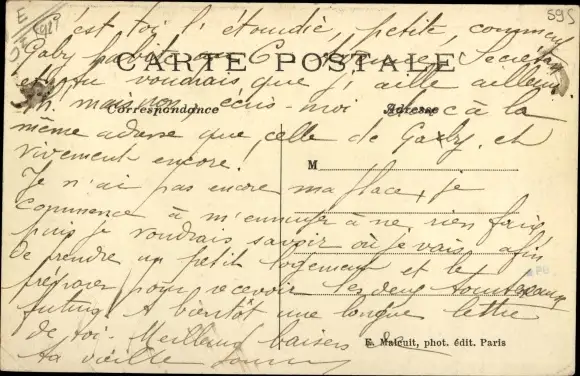 59S
C'est toi l'étourdie, petite, comment
Gaby habite au 6
CARTE POSTALE
et tu voudrais que j'aille ailleurs
mais non, écris-moi donc à la
Correspondance Adresse
même adresse que celle de Gaby, et
vivement encore!
M
Je n'ai pas encore ma place, je
commence à m'ennuyer à ne rien faire
puis je voudrais savoir où je vais, afin
de prendre un petit logement et le
préparer pour recevoir les deux tourtereaux
futurs. A bientôt une longue lettre
de toi. Meilleurs baisers de
E. Malcuit, phot. édit. Paris
ta vieille